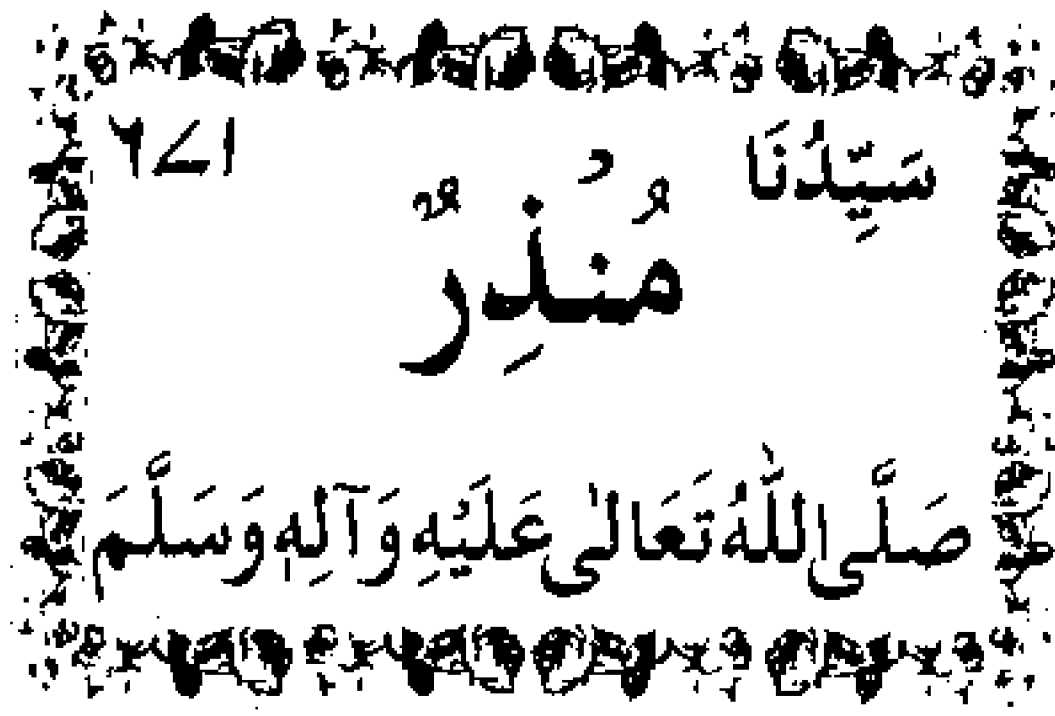 سَيِّدُنَا ۲۷۱
مُنْذِرٌ
صَلَّى اللّٰهُ تَعَالٰى عَلَيْهِ وَآلِهٖ وَسَلَّمَ